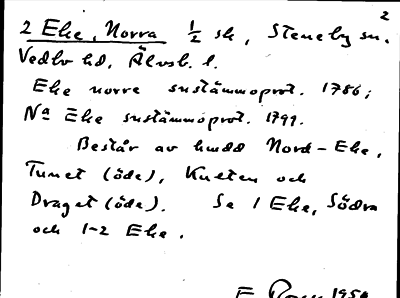 2
2 Ehe, Norra 1/2 sk, Steneby sn.
Vedbo hd, Älvsb. l.
Ehe norre sustämmoprot. 1786;
Na Ehe sustämmoprot. 1799.
Består av hmdd Nord-Ehe,
Tunet (öde), Kulten och
Draget (öde). Se 1 Ehe, Södra
och 1-2 Ehe.
E 1950